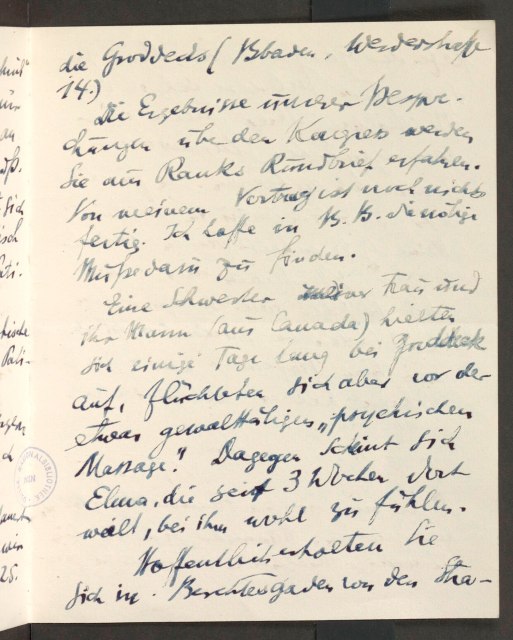 die Groddecks (Bbaden, Werderstraße
14.)
Die Ergebnisse unserer Bespre-
chungen über den Kongress werden
Sie aus Ranks Rundbrief erfahren.
Von meinem Vortrag ist noch nichts
fertig. Ich hoffe in B.B. die nötige
Muße dazu zu finden.
Eine Schwester meiner Frau und
ihr Mann (aus Canada) hielten
sich einige Tage lang bei Groddeck
auf, flüchteten sich aber vor der
etwas gewalttätigen „psychischen
Massage". Dagegen scheint sich
Elma, die seit 3 Wochen dort
weilt, bei ihm wohl zu fühlen.
Hoffentlich erholten Sie
sich in Berchtesgaden von den Stra-